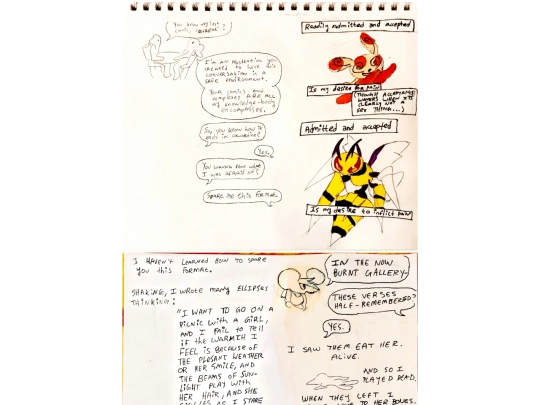 You know my last
comic, "
I'm an abstraction you
created to have this
conversation in a
safe environment.
Both comics and
complexes are all
of knowledge-body
encompasses.
So, you know how it
ends in
Yes.
You wanna know what
I was afraid of?
Spare me this format.
Readily admitted and accepted
Is my desire for pain
(Though acceptance
wavers when it's
clearly not a
sex thing...)
Admitted and accepted
Is my desire to inflict pain
I HAVEN'T LEARNED HOW TO SPARE
YOU THIS FORMAT.
SHAKING, I WROTE MANY ELLIPSES
THINKING:
"I WANT TO GO ON A
PICNIC WITH A GIRL,
AND I FAIL TO TELL
IF THE WARMTH I
FEEL IS BECAUSE OF
THE PLESANT WEATHER
OR HER SMILE, AND
THE BEAMS OF SUN-
LIGHT PLAY WITH
HER HAIR, AND SHE
AS I STARE
IN THE NOW
BURNT GALLERY-
THESE VERSES
HALF-REMEMBERED?
YES.
I SAW THEM EAT HER.
ALIVE.
AND SO I
PLAYED DEAD.
WHEN THEY LEFT I
TO HER BONES.